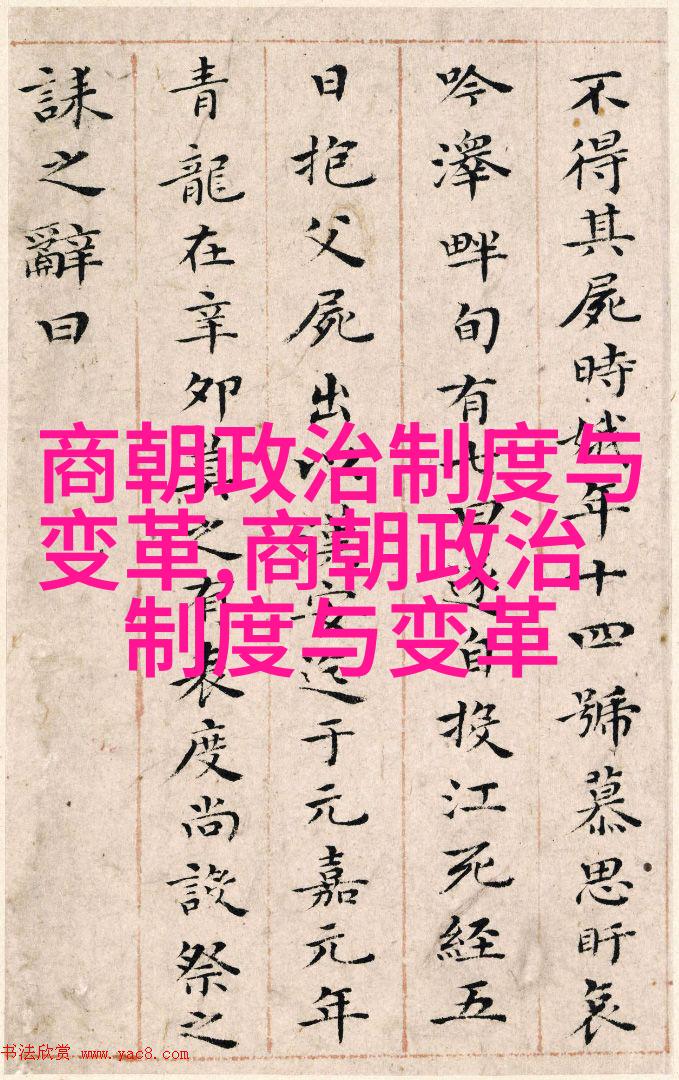 不得其屍時娥年十四號慕思盱哀
吟澤畔旬有七日遂自投江死經五
日抱父屍出以漢安迄于元嘉元年
青龍在辛卯莫之有表度尚設祭之
誄之辭曰
商朝政治制度与
变革,商朝政治
制度与变革
书法欣赏 www.yac8.com